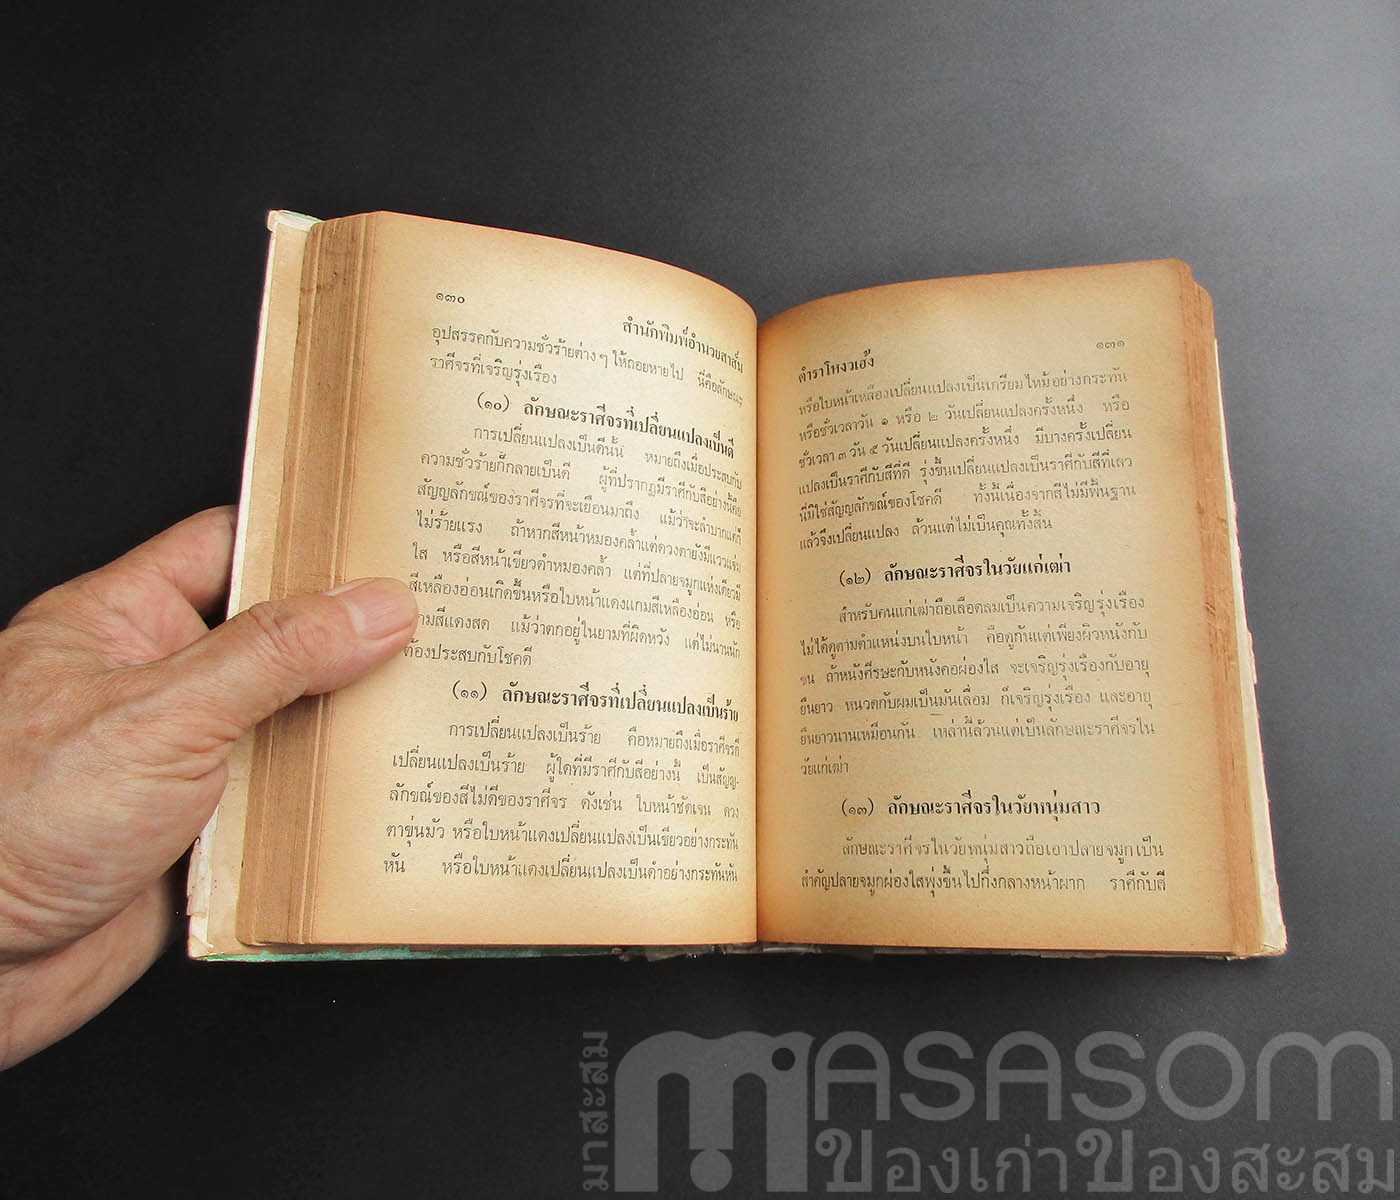 ๑๓๐
สำนักพิมพ์อำนวยสาส์น
อุปสรรคกับความชั่วร้ายต่าง ๆ ให้ถอยหายไป นี่คือลักษณะ
ราศีจรที่เจริญรุ่งเรือง
(๑๐) ลักษณะราศีจรที่เปลี่ยนแปลงเป็นดี
การเปลี่ยนแปลงเป็นดีนั้น หมายถึงเมื่อประสบกับ
ความชั่วร้ายก็กลายเป็นดี ผู้ที่ปรากฏมีราศีกับสีอย่างนี้คือ
สัญญลักขณ์ของราศีจรที่จะเยือนมาถึง แม้ว่าจะลำบากแต่ก็
ไม่ร้ายแรง ถ้าหากสีหน้าหมองคล้ำแต่ดวงตายังมีแววแจ่ม
ใส หรือสีหน้าเขียวดำหมองคล้ำ แต่ที่ปลายจมูกแห่งเดียวมี
สีเหลืองอ่อนเกิดขึ้นหรือใบหน้าแดงแกมสีเหลืองอ่อน หรือ
แกมสีแดงสด แม้ว่าตกอยู่ในยามที่ผิดหวัง แต่ไม่นานนัก
ต้องประสบกับโชคดี
(๑๑) ลักษณะราศีจรที่เปลี่ยนแปลงเป็นร้าย
การเปลี่ยนแปลงเป็นร้าย คือหมายถึงเมื่อราศีจรก็
เปลี่ยนแปลงเป็นร้าย ผู้ใดที่มีราศีกับสีอย่างนี้ เป็นสัญญ-
ลักขณ์ของสีไม่ดีของราศีจร ดังเช่น ใบหน้าชัดเจน ดวง
ตาขุ่นมัว หรือใบหน้าแดงเปลี่ยนแปลงเป็นเขียวอย่างกระทัน
หัน หรือใบหน้าแดงเปลี่ยนแปลงเป็นดำอย่างกระทันหัน
๑๓๑
ตำราโหงวเฮ้ง
หรือใบหน้าเหลืองเปลี่ยนแปลงเป็นเกรียมไหม้อย่างกระทัน
หรือชั่วเวลาวัน ๑ หรือ ๒ วันเปลี่ยนแปลงครั้งหนึ่ง หรือ
ชั่วเวลา ๓ วัน ๕ วันเปลี่ยนแปลงครั้งหนึ่ง มีบางครั้งเปลี่ยน
แปลงเป็นราศีกับสีที่ดี รุ่งขึ้นเปลี่ยนแปลงเป็นราศีกับสีที่เลว
นี่มิใช่สัญญลักขณ์ของโชคดี ทั้งนี้เนื่องจากสีไม่มีพื้นฐาน
แล้วจึงเปลี่ยนแปลง ล้วนแต่ไม่เป็นคุณทั้งสิ้น
(๑๒) ลักษณะราศีจรในวัยแก่เฒ่า
สำหรับคนแก่เฒ่าถือเลือดลมเป็นความเจริญรุ่งเรือง
ไม่ได้ดูตามตำแหน่งบนใบหน้า คือดูกันแต่เพียงผิวหนังกับ
ขน ถ้าหนังศีรษะกับหนังคอผ่องใส จะเจริญรุ่งเรืองกับอายุ
ยืนยาว หนวดกับผมเป็นมันเลื่อม ก็เจริญรุ่งเรือง และอายุ
ยืนยาวนานเหมือนกัน เหล่านี้ล้วนแต่เป็นลักษณะราศีจรใน
วัยแก่เฒ่า
(๑๓) ลักษณะราศีจรในวัยหนุ่มสาว
ลักษณะราศีจรในวัยหนุ่มสาวถือเอาปลายจมูกเป็น
สำคัญปลายจมูกผ่องใสพุ่งขึ้นไปกึ่งกลางหน้าผาก ราศีกับสี
มาสะสม
MASASOM
ของเก่าของสะสม